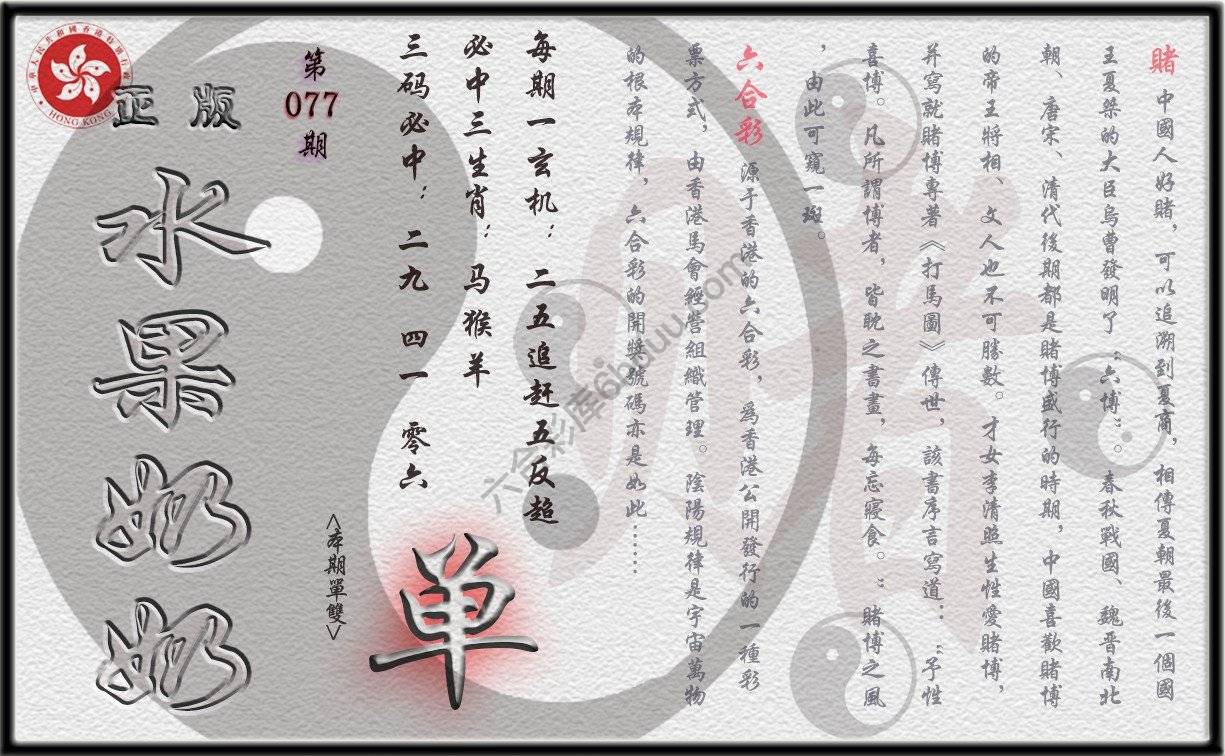 賭 中國人好賭，可以追溯到夏商，相傳夏朝最後一個國
王夏桀的大臣烏曹發明了“六博”。春秋戰國、魏晋南北
朝、唐宋、清代後期都是賭博盛行的時期，中國喜歡賭博
的帝王將相、文人也不可勝數。才女李清照生性愛賭博，
并寫就賭博專著《打馬圖》傳世，該書序言寫道：“予性
喜博。凡所謂博者，皆耽之書畫，每忘寢食。”賭博之風
，由此可窺一斑。
六合彩 源于香港的六合彩，為香港公開發行的一種彩
票方式，由香港馬會經營組織管理。陰陽規律是宇宙萬物
的根本規律，六合彩的開獎號碼亦是如此……
每期一玄机：二五追赶五反超
必中三生肖：马猴羊
三码必中：二九 四一 零六
单
<本期單雙>
第
077
期
正版
水果奶奶
HONG KONG
六合彩库6huuu.com